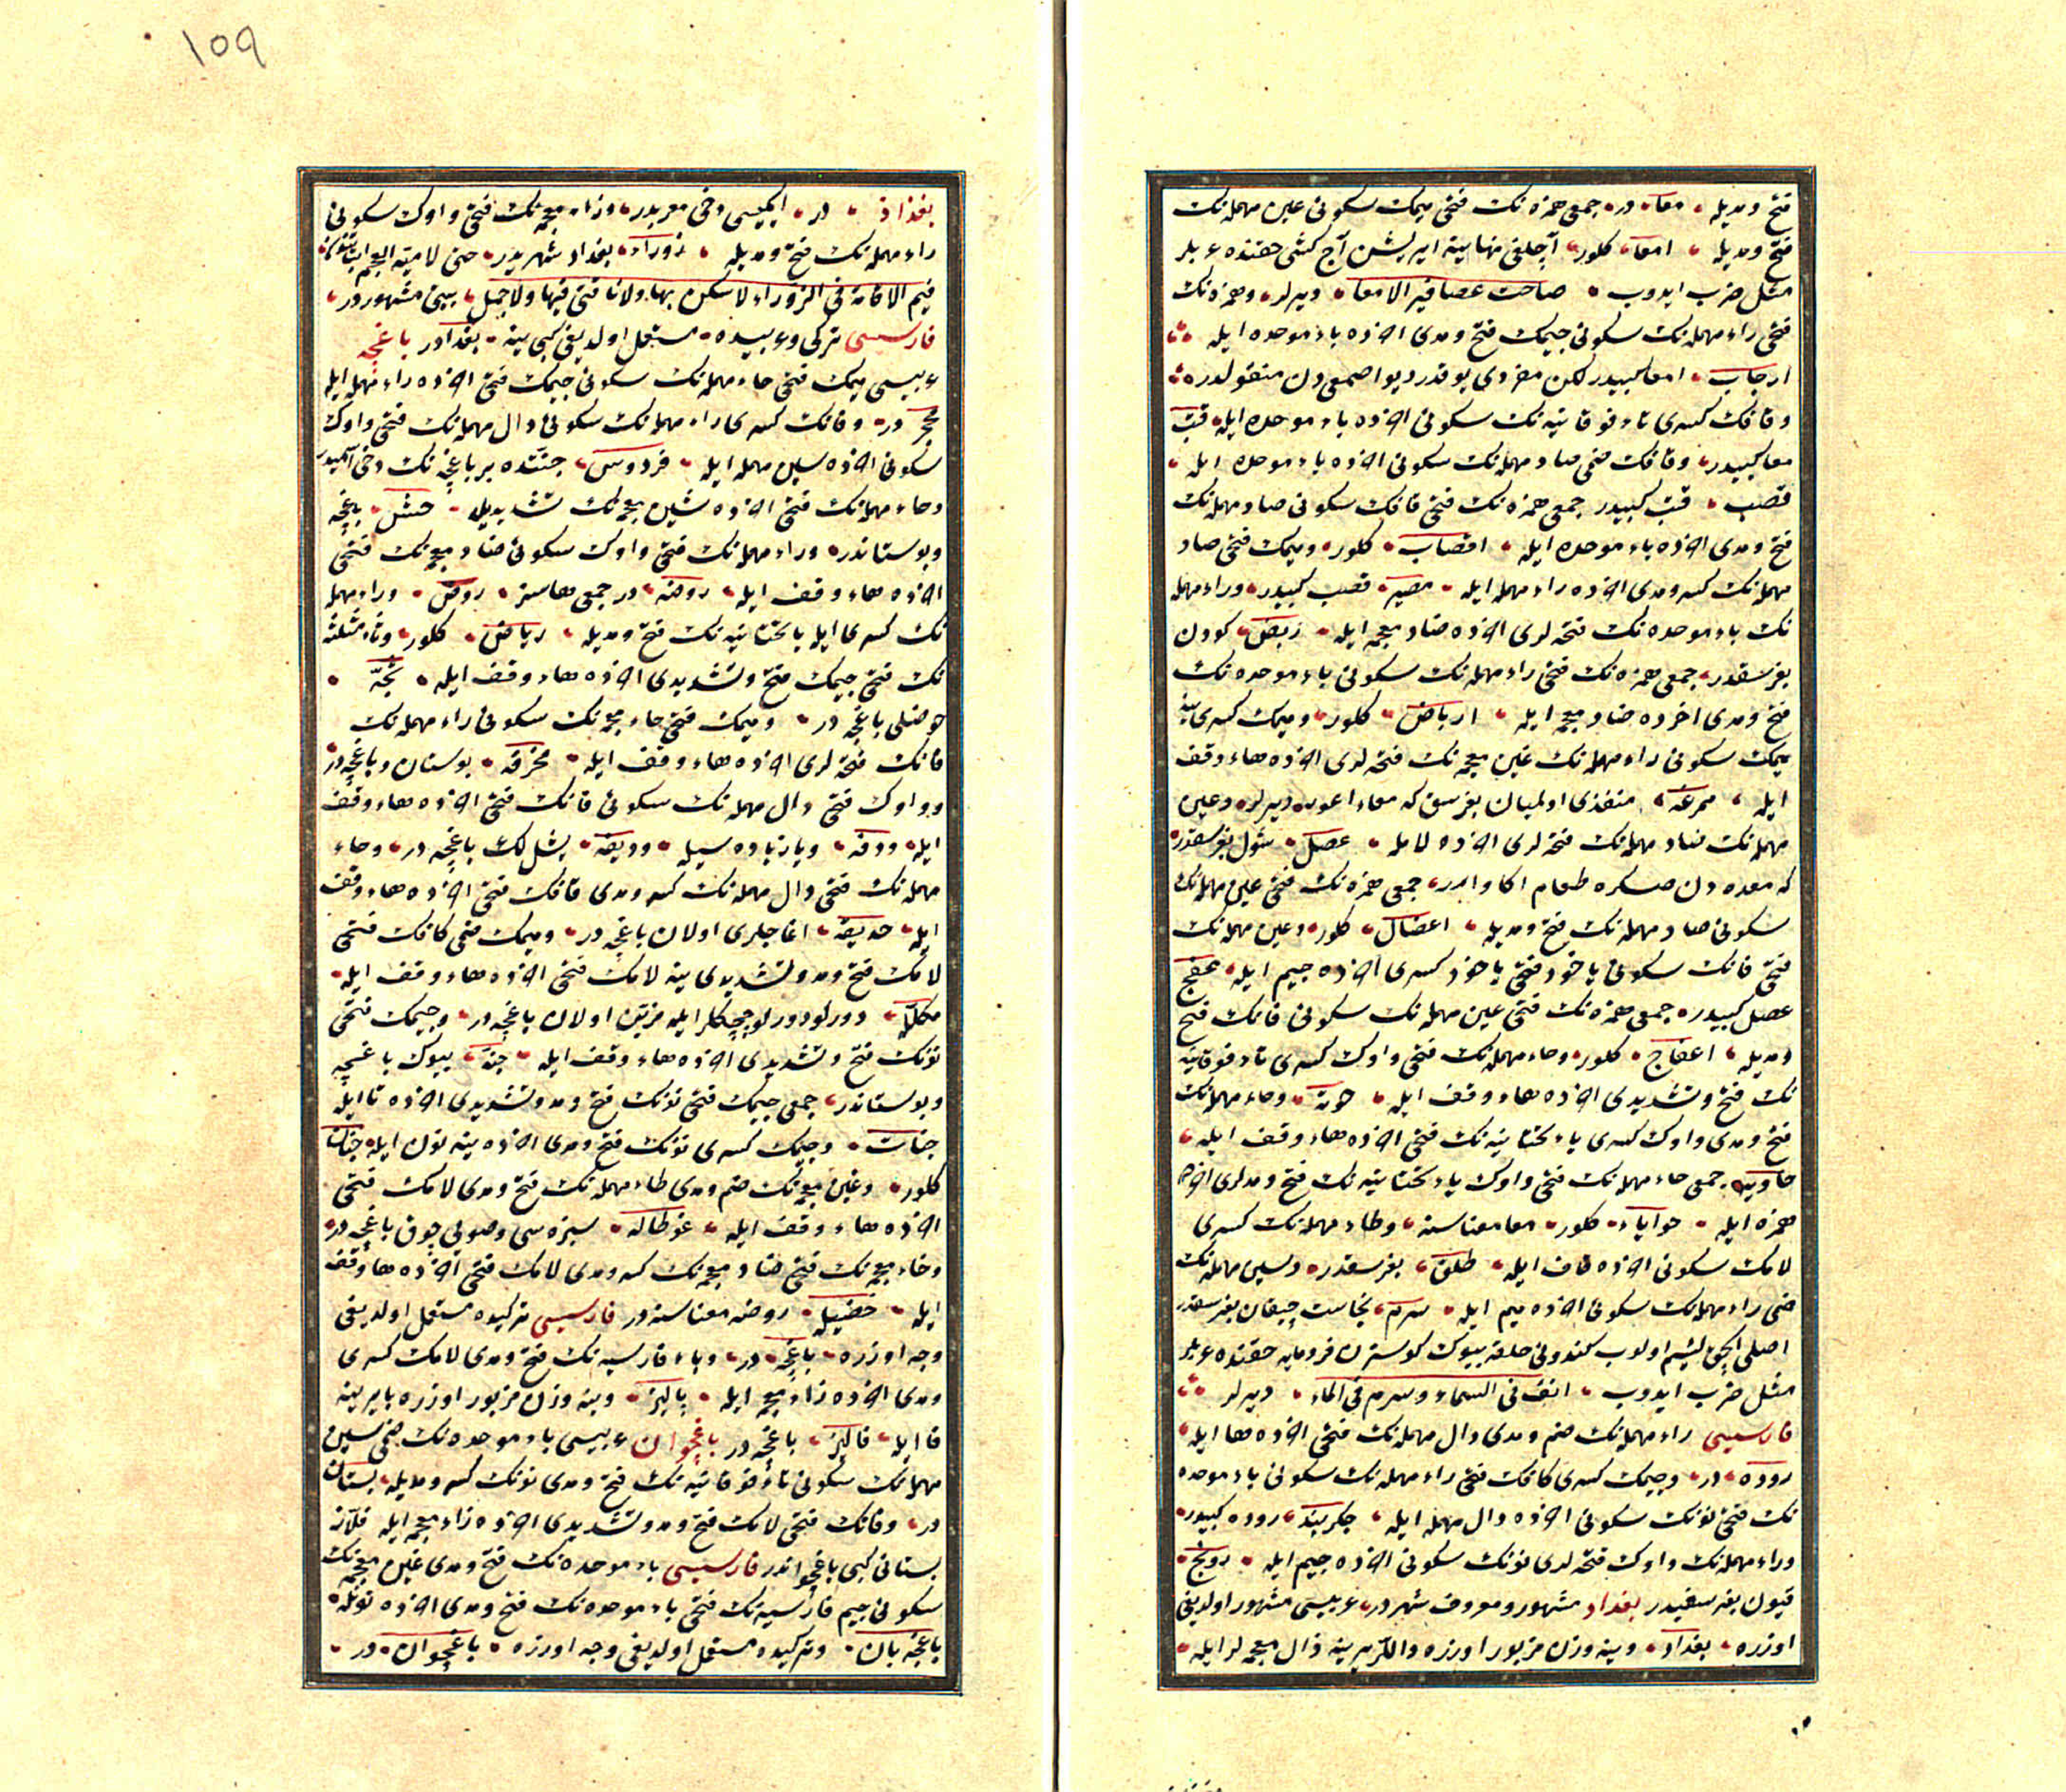 فتح ومديله معاء در جمعى همزه نك فتحى ميمك سكونى عين مهمله نك
فتح ومديله امعاء كلور آجلغى نهايته ايريشن آج كشى حقنده عربلر
مثل ضرب ايدوب صاحت عصافير الامعاء ديرلر وهمزه نك
فتحى راء مهمله نك سكونى جيمك فتح ومدى اخرده باء موحده ايله
ارجاب امعا كبيدر لكن مفردى يوقدر ديو اصمعى دن منقولدر
وقافك كسرى تاء فوقانيه نك سكونى اخرده باء موحده ايله قتب
معا كبيدر وقافك ضمى صاد مهمله نك سكونى اخرده باء موحده ايله
قصب قتب كبيدر جمعى همزه نك فتحى قافك سكونى صاد مهمله نك
فتح ومدى اخرده باء موحده ايله اقصاب كلور وميمك فتحى صاد
مهمله نك كسر ومدى اخرده راء مهمله ايله مصير قصب كبيدر وراء مهمله
نك باء موحده نك فتحه لرى اخرده ضاد معجمه ايله ربض كودن
بغرسقدر جمعى همزه نك فتحى راء مهمله نك سكونى باء موحده نك
فتح ومدى اخرده ضاد معجمه ايله ارباض كلور وميمك كسرى ينه
ميمك سكونى راء مهمله نك غين معجمه نك فتحه لرى اخرده هاء وقف
ايله ممرغه منفذى اولميان بغرسق كه معاء اعور ديرلر وعين
مهمله نك صاد مهمله نك فتحه لرى اخرده لامله عصل شول بغرسقدر
كه معده دن صكره طعام اكا وارر جمعى همزه نك فتحى عين مهمله نك
سكونى صاد مهمله نك فتح ومديله اعصال كلور وعين مهمله نك
فتحى فانك سكونى ياخود فتحى ياخود كسرى اخرده جيم ايله عفج
عصل كبيدر جمعى همزه نك فتحى عين مهمله نك سكونى فانك فتح
ومديله اعفاج كلور وحاء مهمله نك فتحى واوك كسرى ياء تحتانيه
نك فتح وتشديدى اخرده هاء وقف ايله حوية وحاء مهمله نك
فتح ومدى واوك كسرى ياء تحتانيه نك فتحى اخرده هاء وقف ايله
حاويه جمعى حاء مهمله نك فتحى واوك ياء تحتانيه نك فتح ومدلرى اخرده
همزه ايله حواياء كلور معا معناسنه وطاء مهمله نك كسرى
لامك سكونى اخرده قاف ايله طلق بغرسقدر وسين مهمله نك
ضمى راء مهمله نك سكونى اخرده ميم ايله سرم نجاست چيقان بغرسقدر
اصلى الچق لئيم اولوب كندونى خلقه بيوك كوسترن فرومايه حقنده عربلر
مثل ضرب ايدوب انف فى السماء وسرم فى الماء ديرلر
فارسيسى راء مهمله نك ضم ومدى دال مهمله نك فتحى اخرده ها ايله
روده در وجيمك كسرى كافك فتحى راء مهمله نك سكونى باء موحده
نك فتحى نونك سكونى اخرده دال مهمله ايله جكربند روده كبيدر
وراء مهمله نك واوك فتحه لرى نونك سكونى اخرده جيم ايله رونج
قيون بغرسغيدر بغداد مشهور ومعروف شهردر عربيسى مشهور اولديغى
اوزره بغداد وينه وزن مزبور اوزره دالر يرينه ذال معجمه لر ايله
١٠٩
بغداذ در ايكيسى دخى معربدر وزاء معجمه نك فتحى واوك سكونى
راء مهمله نك فتح ومديله زوراء بغداد شهريدر حتى لامية العجم
فيم الاقامة فى الزوراء لا سكنى بها ولا ناقتى فيها ولا جملى بيتى مشهوردر
فارسيسى تركى وعربيده مستعمل اولديغى كبى ينه بغداددر باغچه
عربيسى ميمك فتحى حاء مهمله نك سكونى جيمك فتحى اخرده راء مهمله ايله
محجر در وفانك كسرى راء مهمله نك سكونى دال مهمله نك فتحى واوك
سكونى اخرده سين مهمله ايله فردوس جنتده بر باغچه نك دخى آديدر
وحاء مهمله نك فتحى اخرده شين معجمه نك تشديديله حش باغچه
وبوستاندر وراء مهمله نك فتحى واوك سكونى ضاد معجمه نك فتحى
اخرده هاء وقف ايله روضه در جمعى هاسز روض وراء مهمله
نك كسرى ايله ياء تحتانيه نك فتح ومديله رياض كلور وثاء مثلثه
نك فتحى جيمك فتح وتشديدى اخرده هاء وقف ايله ثجة
حوضلى باغچه در وميمك فتحى خاء معجمه نك سكونى راء مهمله نك
فانك فتحه لرى اخرده هاء وقف ايله مخرفه بوستان وباغچه در
وواوك فتحى دال مهمله نك سكونى فانك فتحى اخرده هاء وقف
ايله ودفه ويا زياده سيله وديفه يشللك باغچه در وحاء
مهمله نك فتحى دال مهمله نك كسر ومدى قافك فتحى اخرده هاء وقف
ايله حديقه اغاجلرى اولان باغچه در وميمك ضمى كافك فتحى
لامك فتح ومد وتشديدى ينه لامك فتحى اخرده هاء وقف ايله
مكللة دورلو دورلو چچكلر ايله مزين اولان باغچه در وجيمك فتحى
نونك فتح وتشديدى اخرده هاء وقف ايله جنة بيوك باغچه
وبوستاندر جمعى جيمك فتحى نونك فتح ومد وتشديدى اخرده تا ايله
جنات وجيمك كسرى نونك فتح ومدى اخرده ينه نون ايله جنان
كلور وغين معجمه نك ضم ومدى طاء مهمله نك فتح ومدى لامك فتحى
اخرده هاء وقف ايله غوطاله سبزه سى وصويى چوق باغچه در
وخاء معجمه نك فتحى ضاد معجمه نك كسر ومدى لامك فتحى اخرده هاء وقف
ايله خضيله روضه معناسنه در فارسيسى تركيده مستعمل اولديغى
وجه اوزره باغچه در وباء فارسيه نك فتح ومدى لامك كسرى
ومدى اخرده زاء معجمه ايله پاليز وينه وزن مزبور اوزره با يرينه
فا ايله فاليز باغچه در باغچوان عربيسى باء موحده نك ضمى سين
مهمله نك سكونى تاء فوقانيه نك فتح ومدى نونك كسر ومديله بستانى
در وفانك فتحى لامك فتح ومد وتشديدى اخرده زاء معجمه ايله فلاز
بستانى كبى باغچواندر فارسيسى باء موحده نك فتح ومدى غين معجمه نك
سكونى جيم فارسيه نك فتحى باء موحده نك فتح ومدى اخرده نونله
باغچه بان وتركيده مستعمل اولديغى وجه اوزره باغچوان در